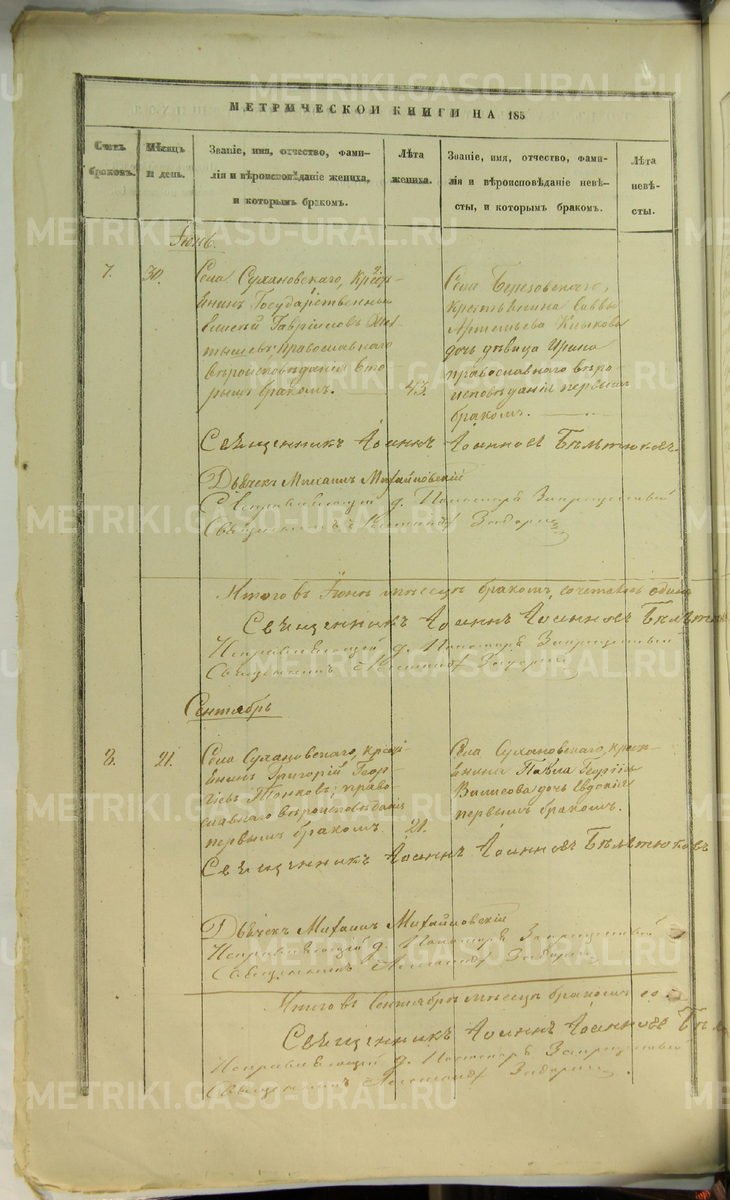 МЕТРИЧЕСКОЙ КНИГИ НА 185
Счетъ браковъ.
Мѣсяцъ и день.
Званіе, имя, отчество, фами-
лія и вѣроисповѣданіе жениха,
и которымъ бракомъ.
Лѣта жениха.
Званіе, имя, отчество, фами-
лія и вѣроисповѣданіе невѣ-
сты, и которымъ бракомъ.
Лѣта невѣ-
сты.
Іюнь.
7. 30.
Села Сухановскаго, крестья-
нинъ Государственный
Гавріиловъ
православнаго
вѣроисповѣданія вто-
рымъ бракомъ.
43.
Села
крестьянина Саввы
Артемьева Клыкова
дочь дѣвица Ирина
православнаго вѣро-
исповѣданія первымъ
бракомъ.
Священникъ Іоаннъ Іоанновъ Бѣлтюковъ.
Дьячекъ Михаилъ Михайловскій
д. Пономаря Запрещенный
Священникъ
Итого въ Іюнѣ мѣсяцѣ бракомъ сочетались одинъ
Священникъ Іоаннъ Іоанновъ
Исправляющій д. Пономаря Запрещенный
Священникъ
Сентябрь
8. 21.
Села Сухановскаго, кресть-
янинъ Григорій Геор-
гіевъ право-
славнаго вѣроисповѣданія
первымъ бракомъ
21.
Села Сухановскаго, кресть-
янина Павла Георгіева
дочь Евдокія
первымъ бракомъ.
Священникъ Іоаннъ Іоанновъ Бѣлтюковъ
Дьячекъ Михаилъ Михайловскій
Исправляющій д. Пономаря Запрещенный
Священникъ
Итого въ Сентябрѣ мѣсяцѣ бракомъ со
Священникъ Іоаннъ Іоанновъ
Исправляющій д. Пономаря Запрещенный
Священникъ
METRIKI.GASO-URAL.RU